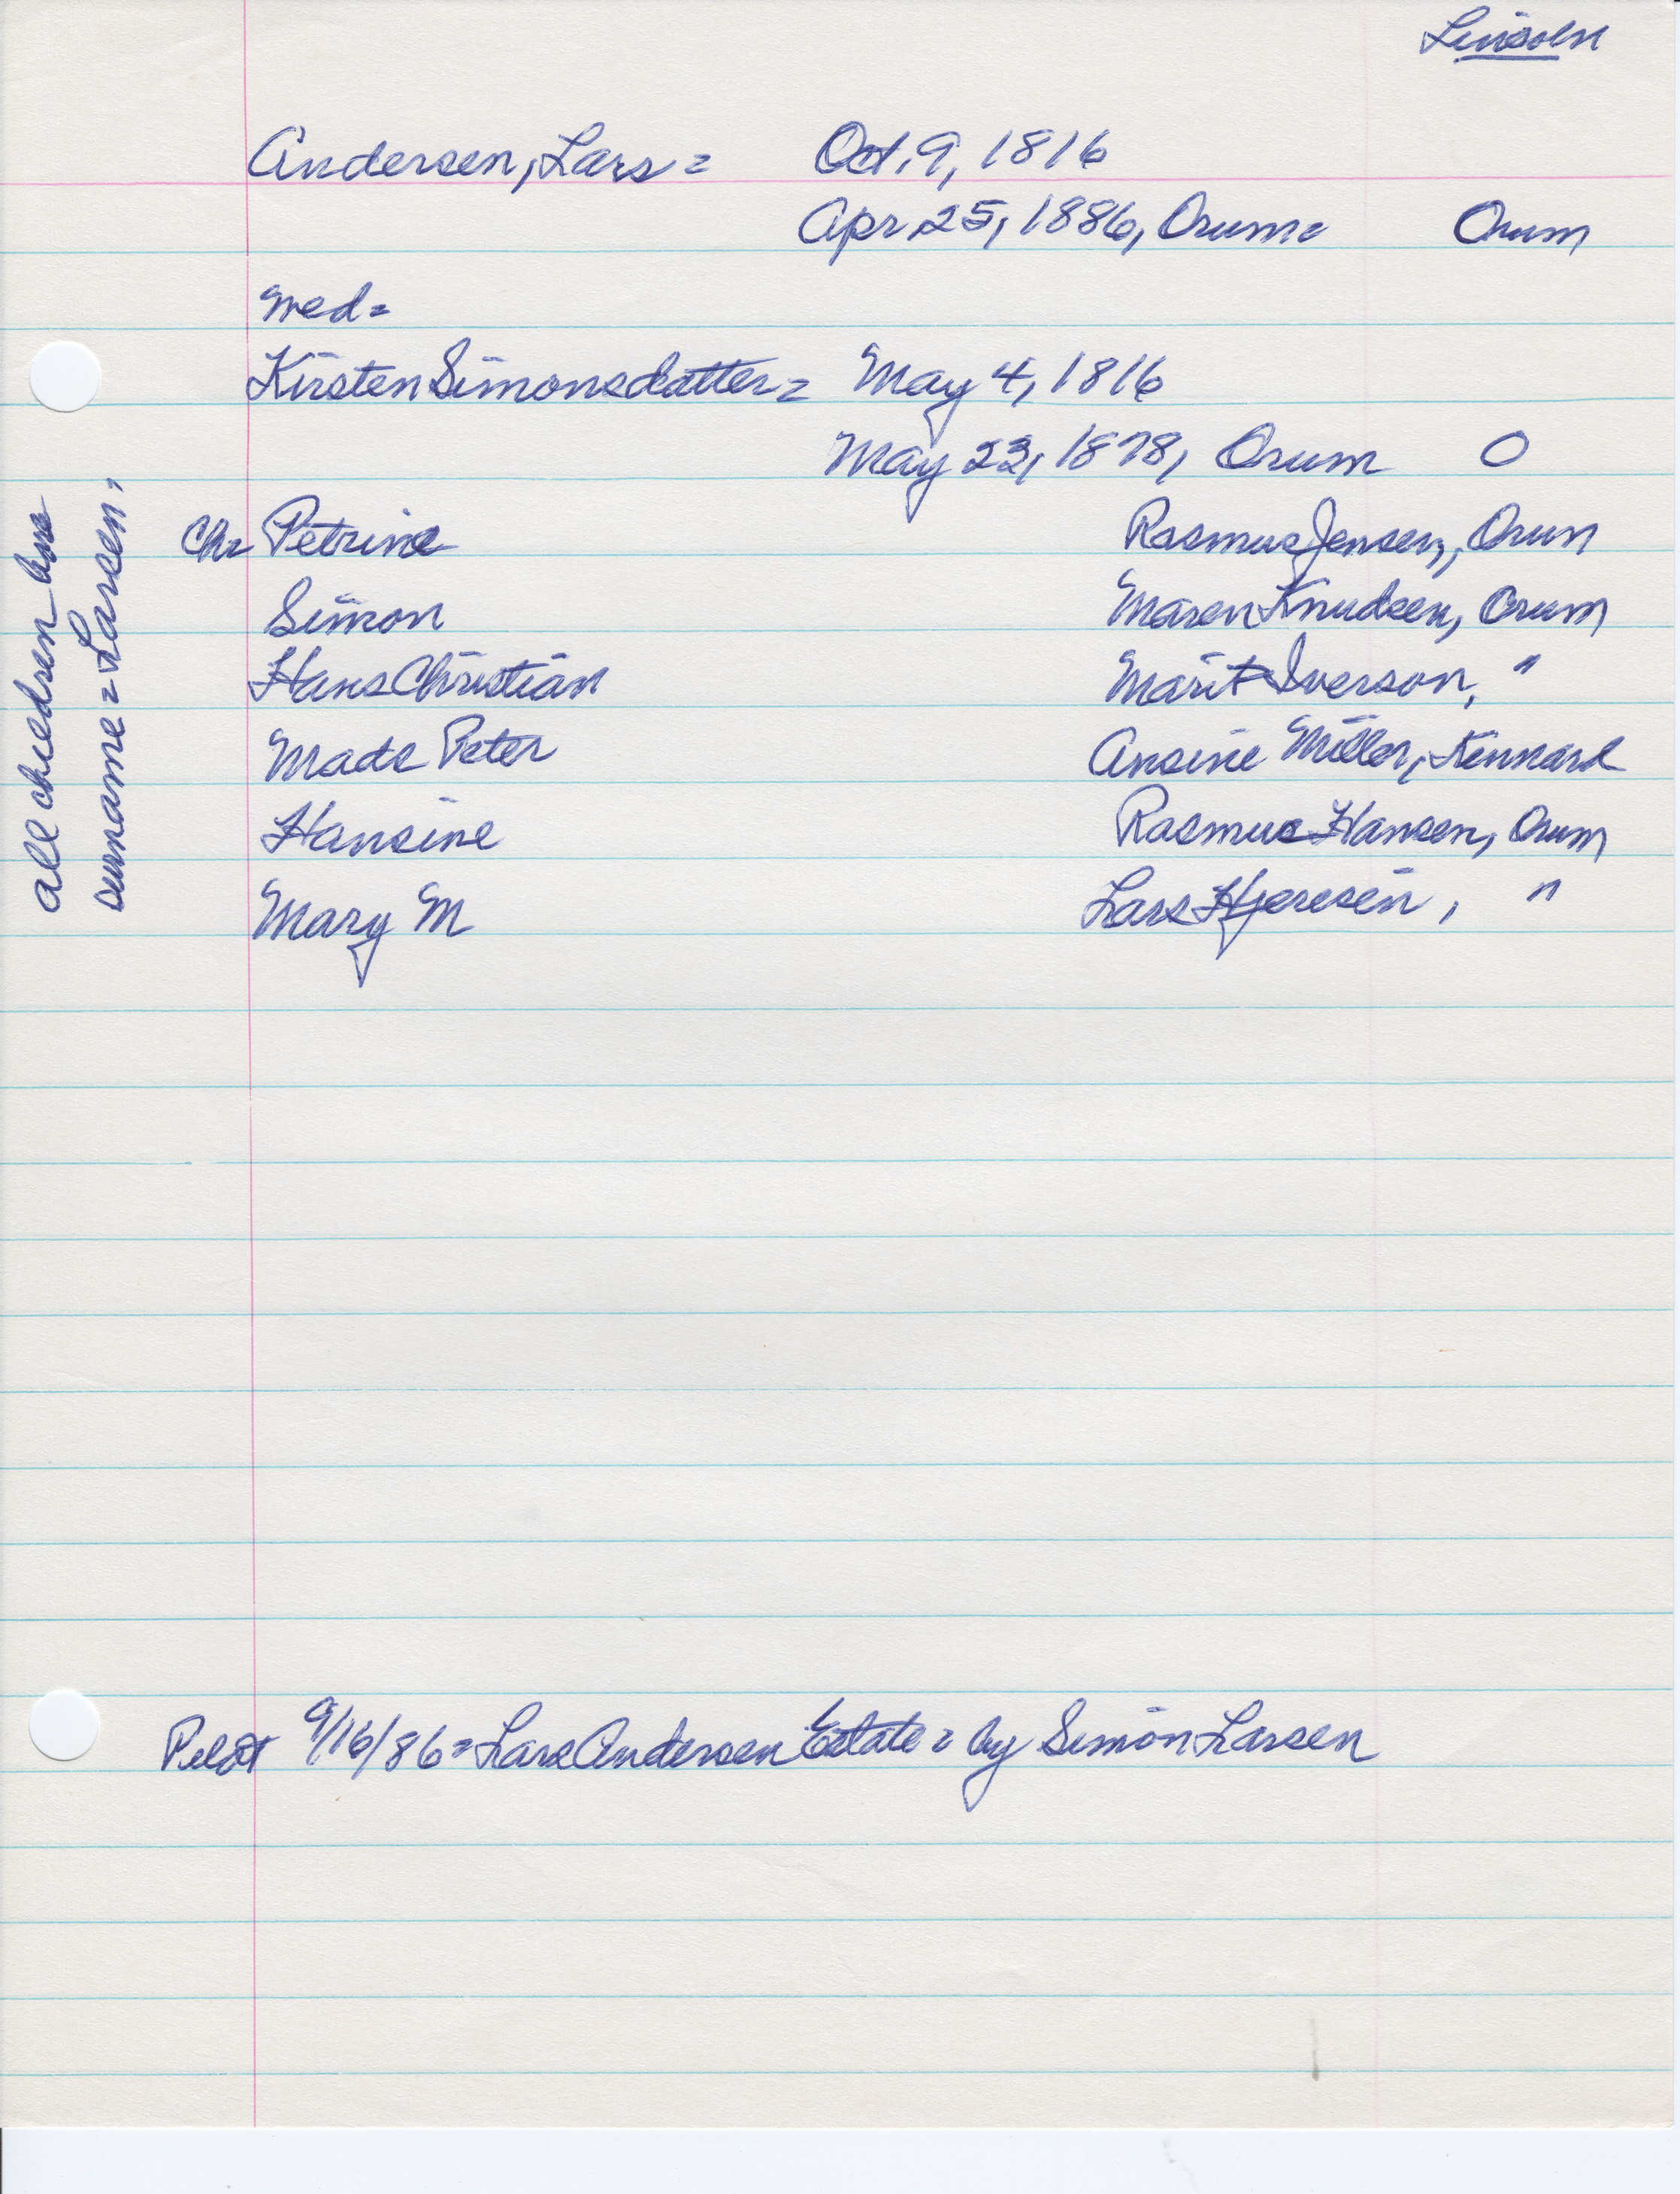 Lincoln
Andersen, Lars = Oct. 9, 1816
Apr 25, 1886, Orum = Orum
Med =
Kirsten Simonsdatter = May 4, 1816
May 23, 1878, Orum O
Chr Petrine Rasmus Jensen, Orum
Simon Maren Knudsen, Orum
Hans Christian Marit Iverson, "
Mads Peter Ansine Miller, Kennard
Hansine Rasmus Hansen, Orum
Mary M Lars Hjeresen, "
all children have
surname = Larsen.
Pilot 9/16/86 = Lars Andersen Estate = by Simon Larsen